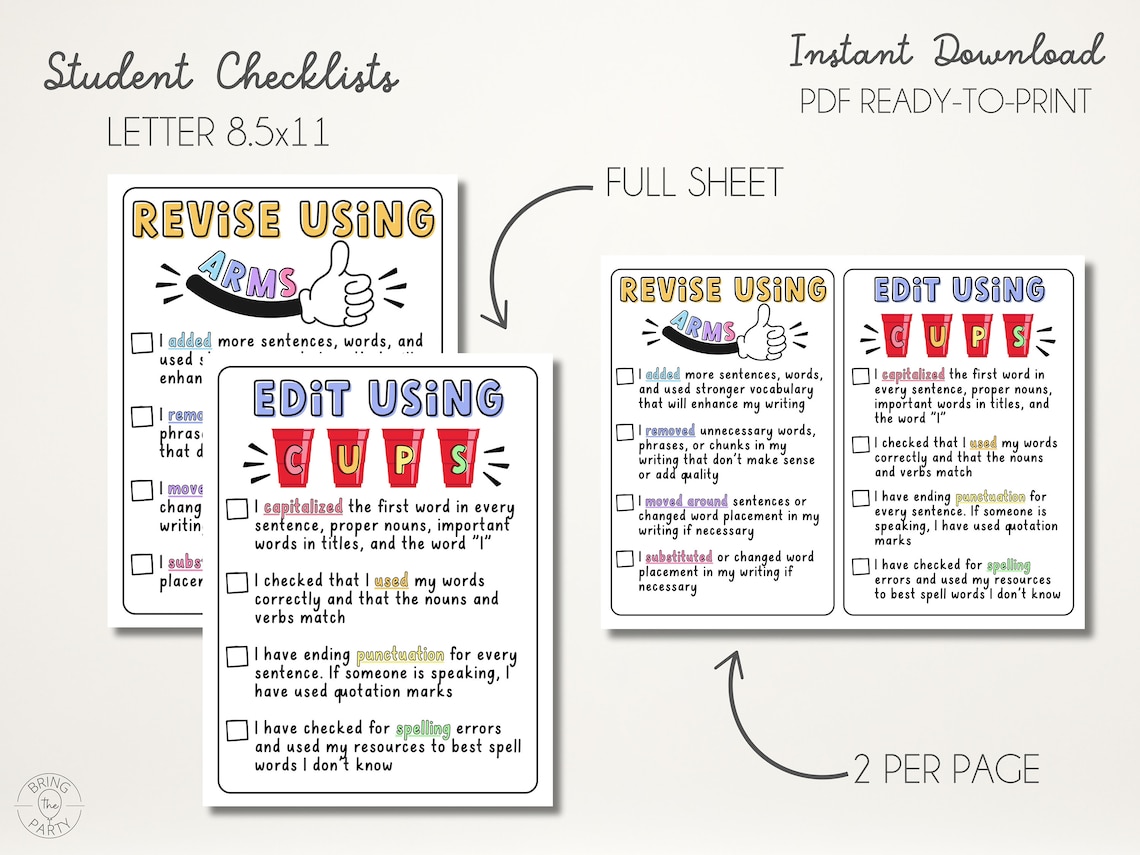 Student Checklists
LETTER 8.5x11
Instant Download
PDF READY-TO-PRINT
FULL SHEET
REVISE USING
ARMS
I added more sentences, words, and
used
enhan
I remo
phras
that d
I move
chang
writing
I subs
placem
EDIT USING
CUPS
I capitalized the first word in every
sentence, proper nouns, important
words in titles, and the word "I"
I checked that I used my words
correctly and that the nouns and
verbs match
I have ending punctuation for every
sentence. If someone is speaking, I
have used quotation marks
I have checked for spelling errors
and used my resources to best spell
words I don't know
REVISE USING
ARMS
I added more sentences, words,
and used stronger vocabulary
that will enhance my writing
I removed unnecessary words,
phrases, or chunks in my
writing that don't make sense
or add quality
I moved around sentences or
changed word placement in my
writing if necessary
I substituted or changed word
placement in my writing if
necessary
EDIT USING
CUPS
I capitalized the first word in
every sentence, proper nouns,
important words in titles, and
the word "I"
I checked that I used my words
correctly and that the nouns
and verbs match
I have ending punctuation for
every sentence. If someone is
speaking, I have used quotation
marks
I have checked for spelling
errors and used my resources
to best spell words I don't know
2 PER PAGE
BRING
the
PARTY